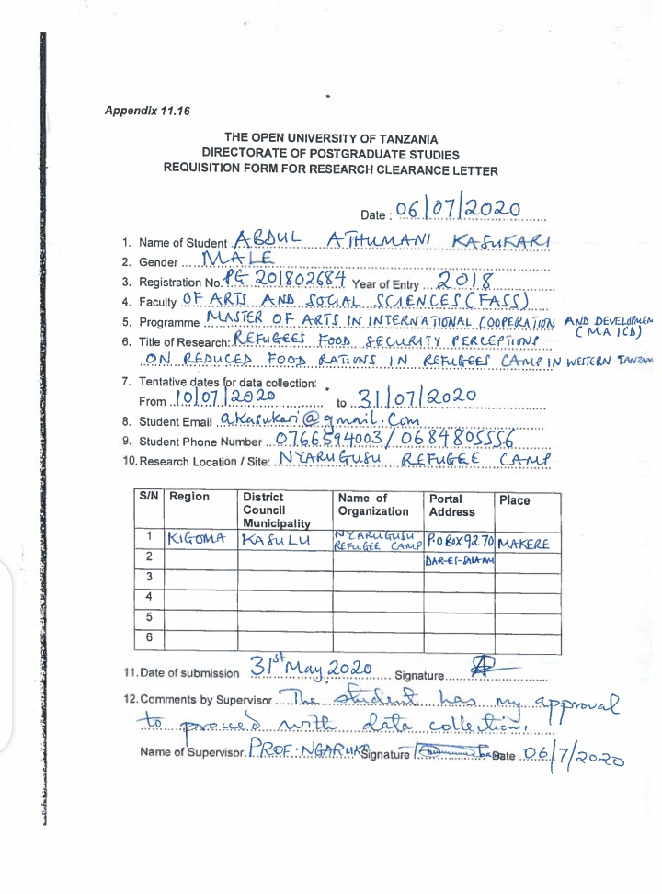 Appendix 11.16
THE OPEN UNIVERSITY OF TANZANIA
DIRECTORATE OF POSTGRADUATE STUDIES
REQUISITION FORM FOR RESEARCH CLEARANCE LETTER
Date : 06/07/2020
1. Name of Student ABDUL ATHUMANI KASUKARI
2. Gender MALE
3. Registration No. PG 201802684 Year of Entry 2018
4. Faculty OF ARTS AND SOCIAL SCIENCES (FASS)
5. Programme MASTER OF ARTS IN INTERNATIONAL COOPERATION AND DEVELOPMEN
(MA ICD)
6. Title of Research: REFUGEES FOOD SECURITY PERCEPTIONS
ON REDUCED FOOD RATIONS IN REFUGEES CAMP IN WESTERN TANZAN
7. Tentative dates for data collection:
From 10/07/2020 to 31/07/2020
8. Student Email akasukari@gmail.com
9. Student Phone Number 0766594003/0684805556
10. Research Location / Site: NYARUGUSU REFUGEE CAMP
S/N Region District Council Municipality Name of Organization Portal Address Place
1 KIGOMA KASULU NYARUGUSU REFUGEE CAMP P.O BOX 9270 MAKERE
2 DAR-ES-SALAAM
3
4
5
6
11. Date of submission 31st May 2020 Signature
12. Comments by Supervisor The student has my approval
to proceed with data collection.
Name of Supervisor. PROF. NGARUKO Signature Date 06/7/2020